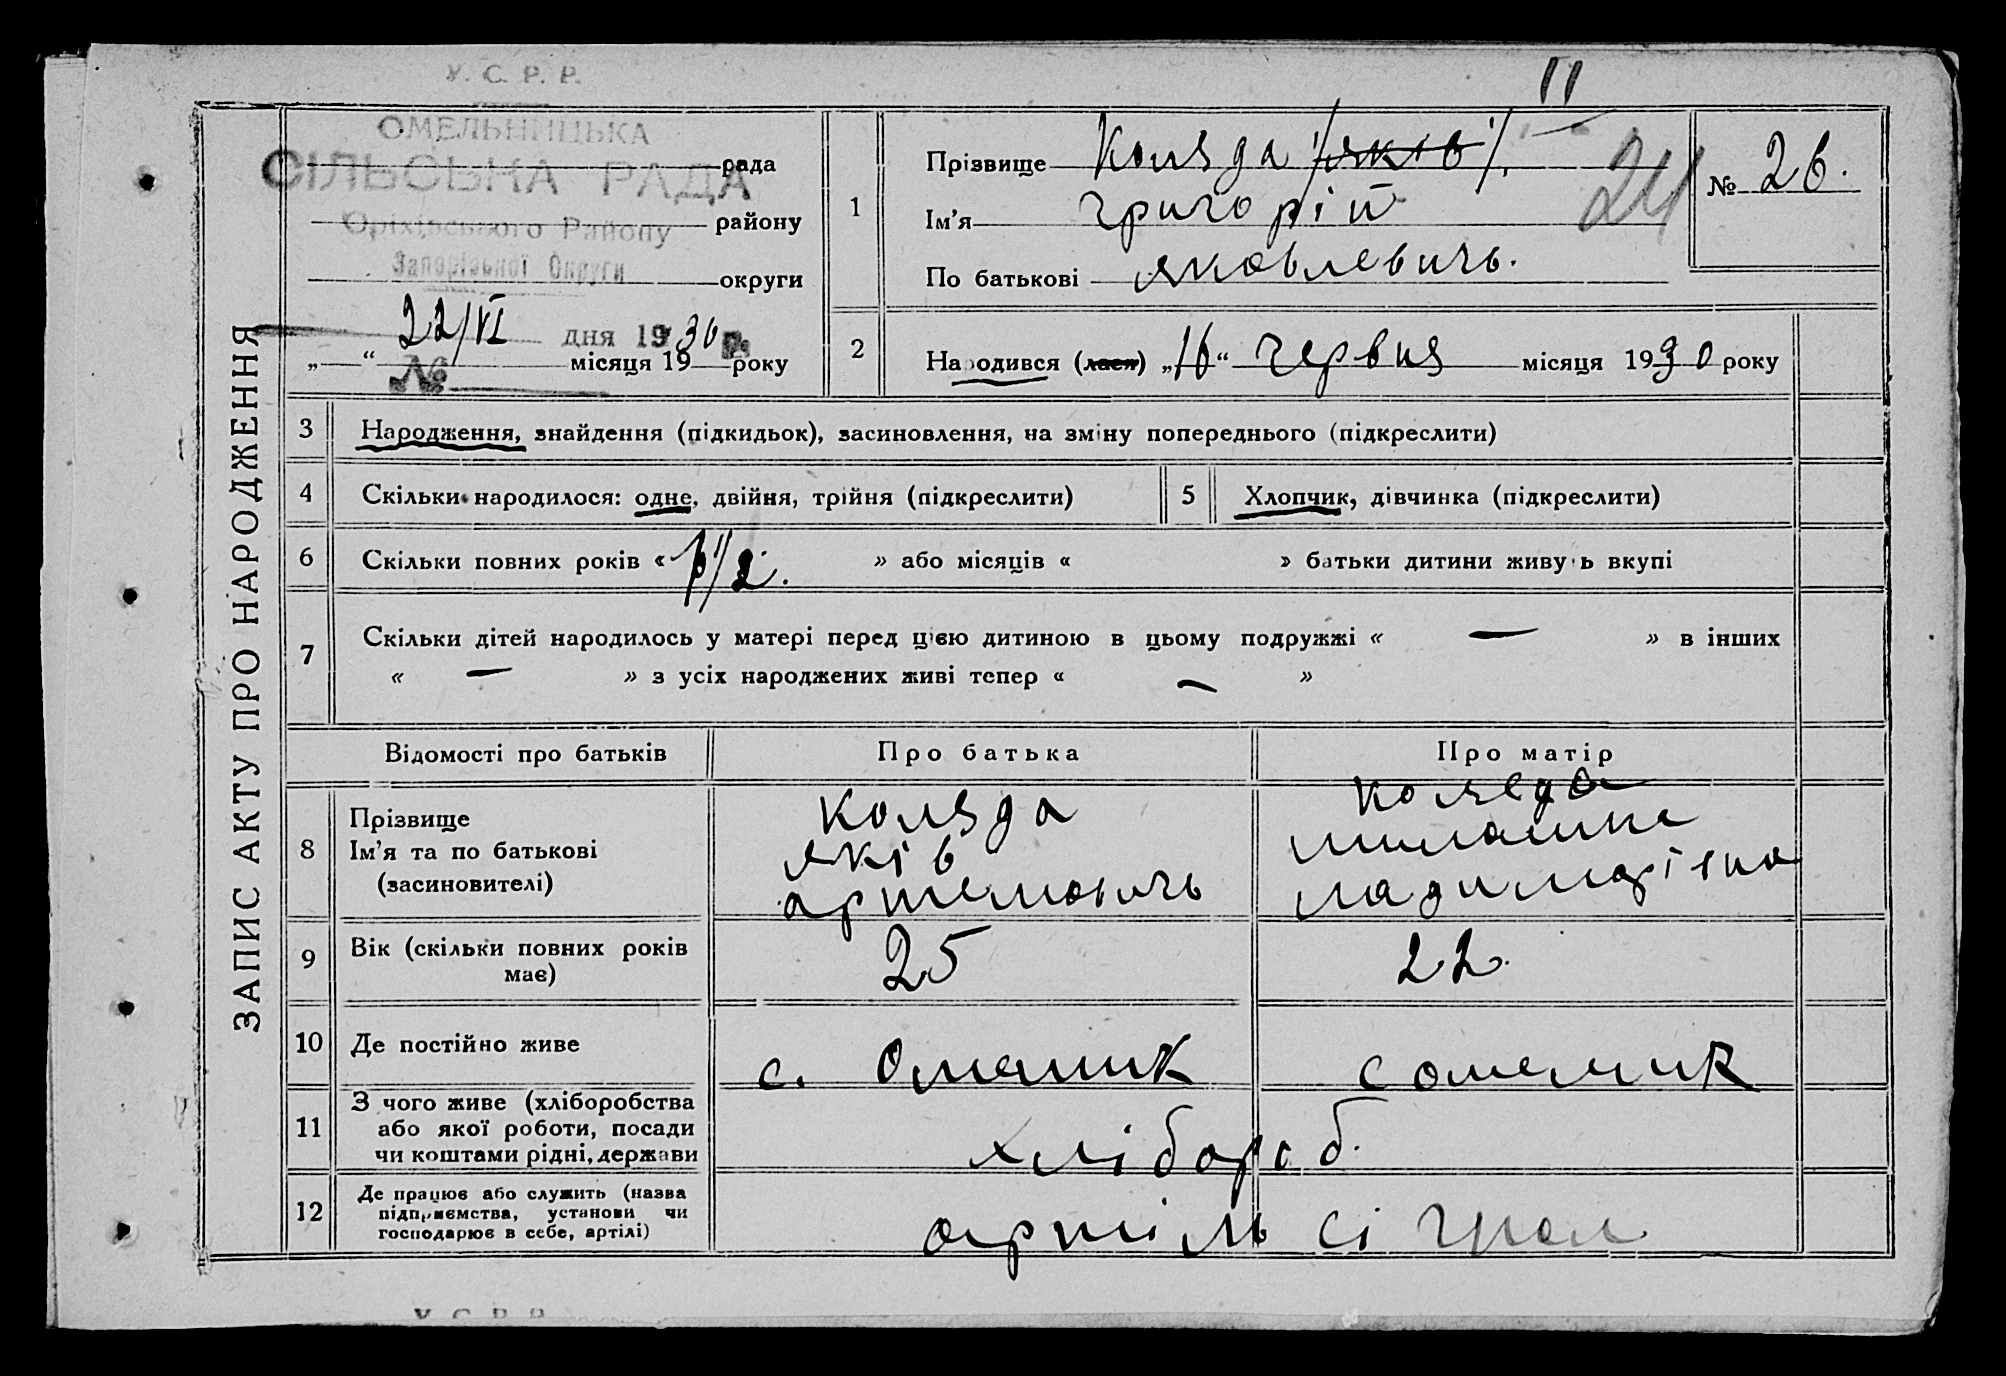 У. С. Р. Р.
ОМЕЛЬНИЦЬКА
СІЛЬСЬКА РАДА
рада
Оріхівського Району
району
Запорізької Округи
округи
22/VI дня 1930 р.
„ “ місяця 19 року
№
ЗАПИС АКТУ ПРО НАРОДЖЕННЯ
11
1
Прізвище Коляда /яків/
Ім’я григорій
По батькові яковлевичь.
24
№ 26.
2
Народився (лася) „16“ червня місяця 1930 року
3 Народження, знайдення (підкидьок), засиновлення, на зміну попереднього (підкреслити)
4 Скільки народилося: одне, двійня, трійня (підкреслити)
5 Хлопчик, дівчинка (підкреслити)
6 Скільки повних років « » або місяців « » батьки дитини живуть вкупі
7 Скільки дітей народилось у матері перед цією дитиною в цьому подружжі « — » в інших
« — » з усіх народжених живі тепер « — »
Відомості про батьків Про батька Про матір
8
Прізвище
Ім’я та по батькові
(засиновителі)
Коляда
яків
артемовичь
коляда
9 Вік (скільки повних років
має)
25
22.
10 Де постійно живе
с. Омелник
с омелник
11
З чого живе (хліборобства
або якої роботи, посади
чи коштами рідні, держави
хлібороб.
12
Де працює або служить (назва
підприємства, установи чи
господарює в себе, артілі)
артіль
У. С. Р. Р.